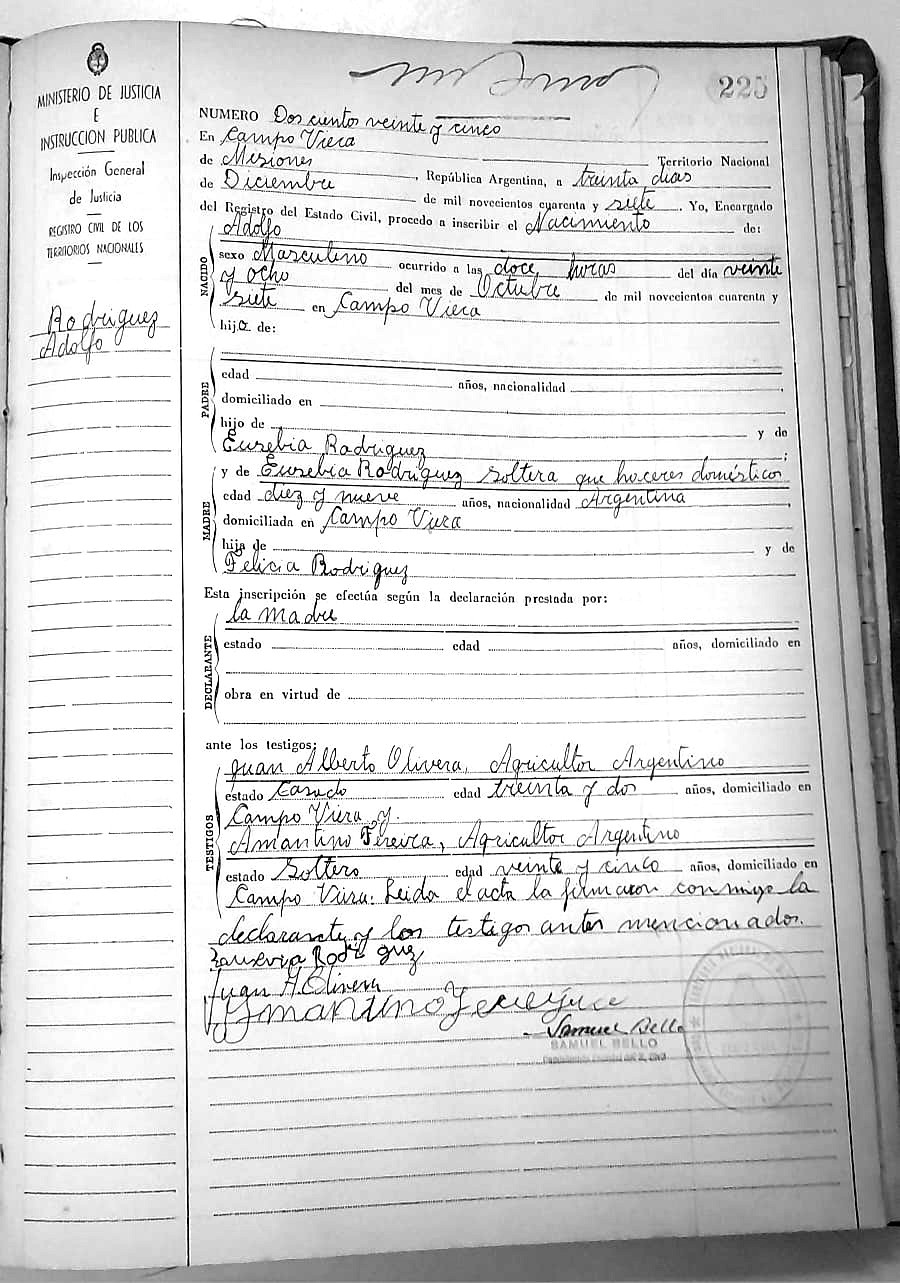 225
MINISTERIO DE JUSTICIA
E
INSTRUCCION PUBLICA
Inspección General
de Justicia
REGISTRO CIVIL DE LOS
TERRITORIOS NACIONALES
Rodriguez
Adolfo
NUMERO Dos cientos veinte y cinco
En Campo Viera Territorio Nacional
de Misiones, República Argentina, a treinta dias
de Diciembre de mil novecientos cuarenta y siete. Yo, Encargado
del Registro del Estado Civil, procedo a inscribir el Nacimiento de:
NACIDO
Adolfo
sexo Masculino ocurrido a las doce horas del día veinte
y ocho del mes de Octubre de mil novecientos cuarenta y
siete en Campo Viera
hijo de:
PADRE
edad años, nacionalidad
domiciliado en
hijo de y de
Eusebia Rodriguez
MADRE
y de Eusebia Rodriguez soltera que haceres domésticos
edad diez y nueve años, nacionalidad Argentina
domiciliada en Campo Viera
hija de y de
Felicia Rodriguez
Esta inscripción se efectúa según la declaración prestada por:
DECLARANTE
la madre
estado edad años, domiciliado en
obra en virtud de
ante los testigos:
TESTIGOS
Juan Alberto Olivera, Agricultor Argentino
estado Casado edad treinta y dos años, domiciliado en
Campo Viera y.
Amantino Pereira, Agricultor Argentino
estado Soltero edad veinte y cinco años, domiciliado en
Campo Viera. Leida el acta la firmaron conmigo la
declarante y los testigos antes mencionados.
Rodriguez
Juan A. Olivera
Amantino
Samuel Bello
SAMUEL BELLO